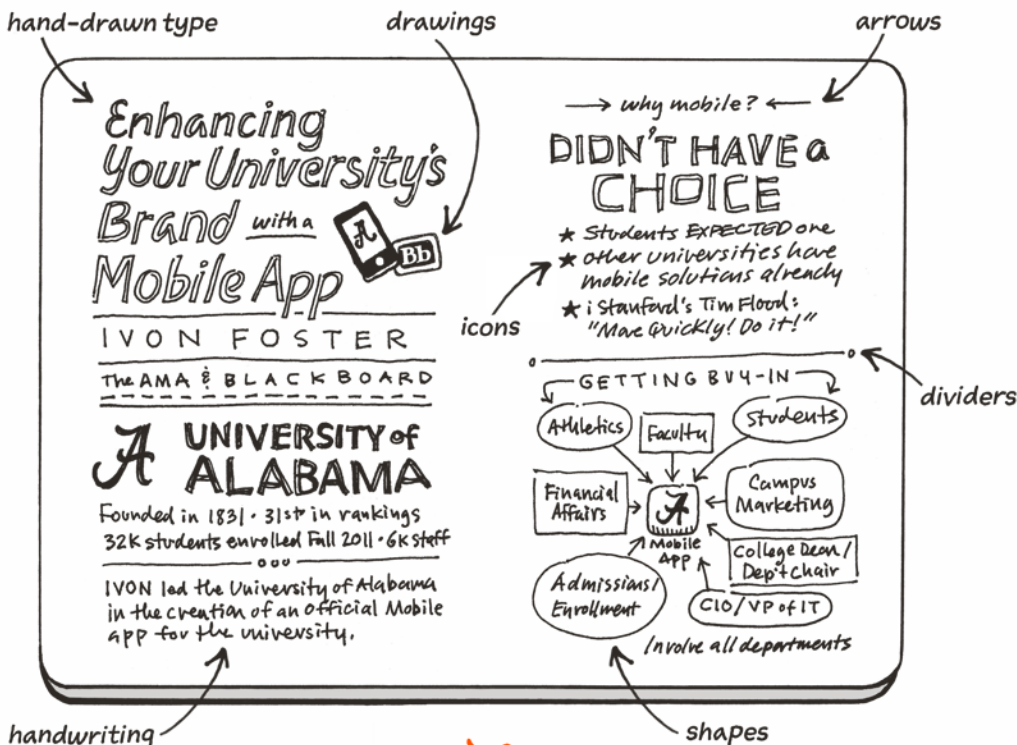 hand-drawn type
drawings
arrows
Enhancing
Your University's
Brand with a
Mobile App
A
Bb
IVON FOSTER
The AMA & BLACKBOARD
A UNIVERSITY of
ALABAMA
Founded in 1831 · 31st in rankings
32K students enrolled Fall 2011 · 6K staff
IVON led the University of Alabama
in the creation of an official Mobile
app for the university.
handwriting
why mobile?
DIDN'T HAVE a
CHOICE
★ Students EXPECTED one
★ other universities have
mobile solutions already
★ i Stanford's Tim Flood:
"Move Quickly! Do it!"
icons
dividers
GETTING BUY-IN
Athletics
Faculty
Students
Financial
Affairs
A
Mobile
APP
Campus
Marketing
College Dean/
Dep't Chair
Admissions/
Enrollment
CIO/VP of IT
Involve all departments
shapes